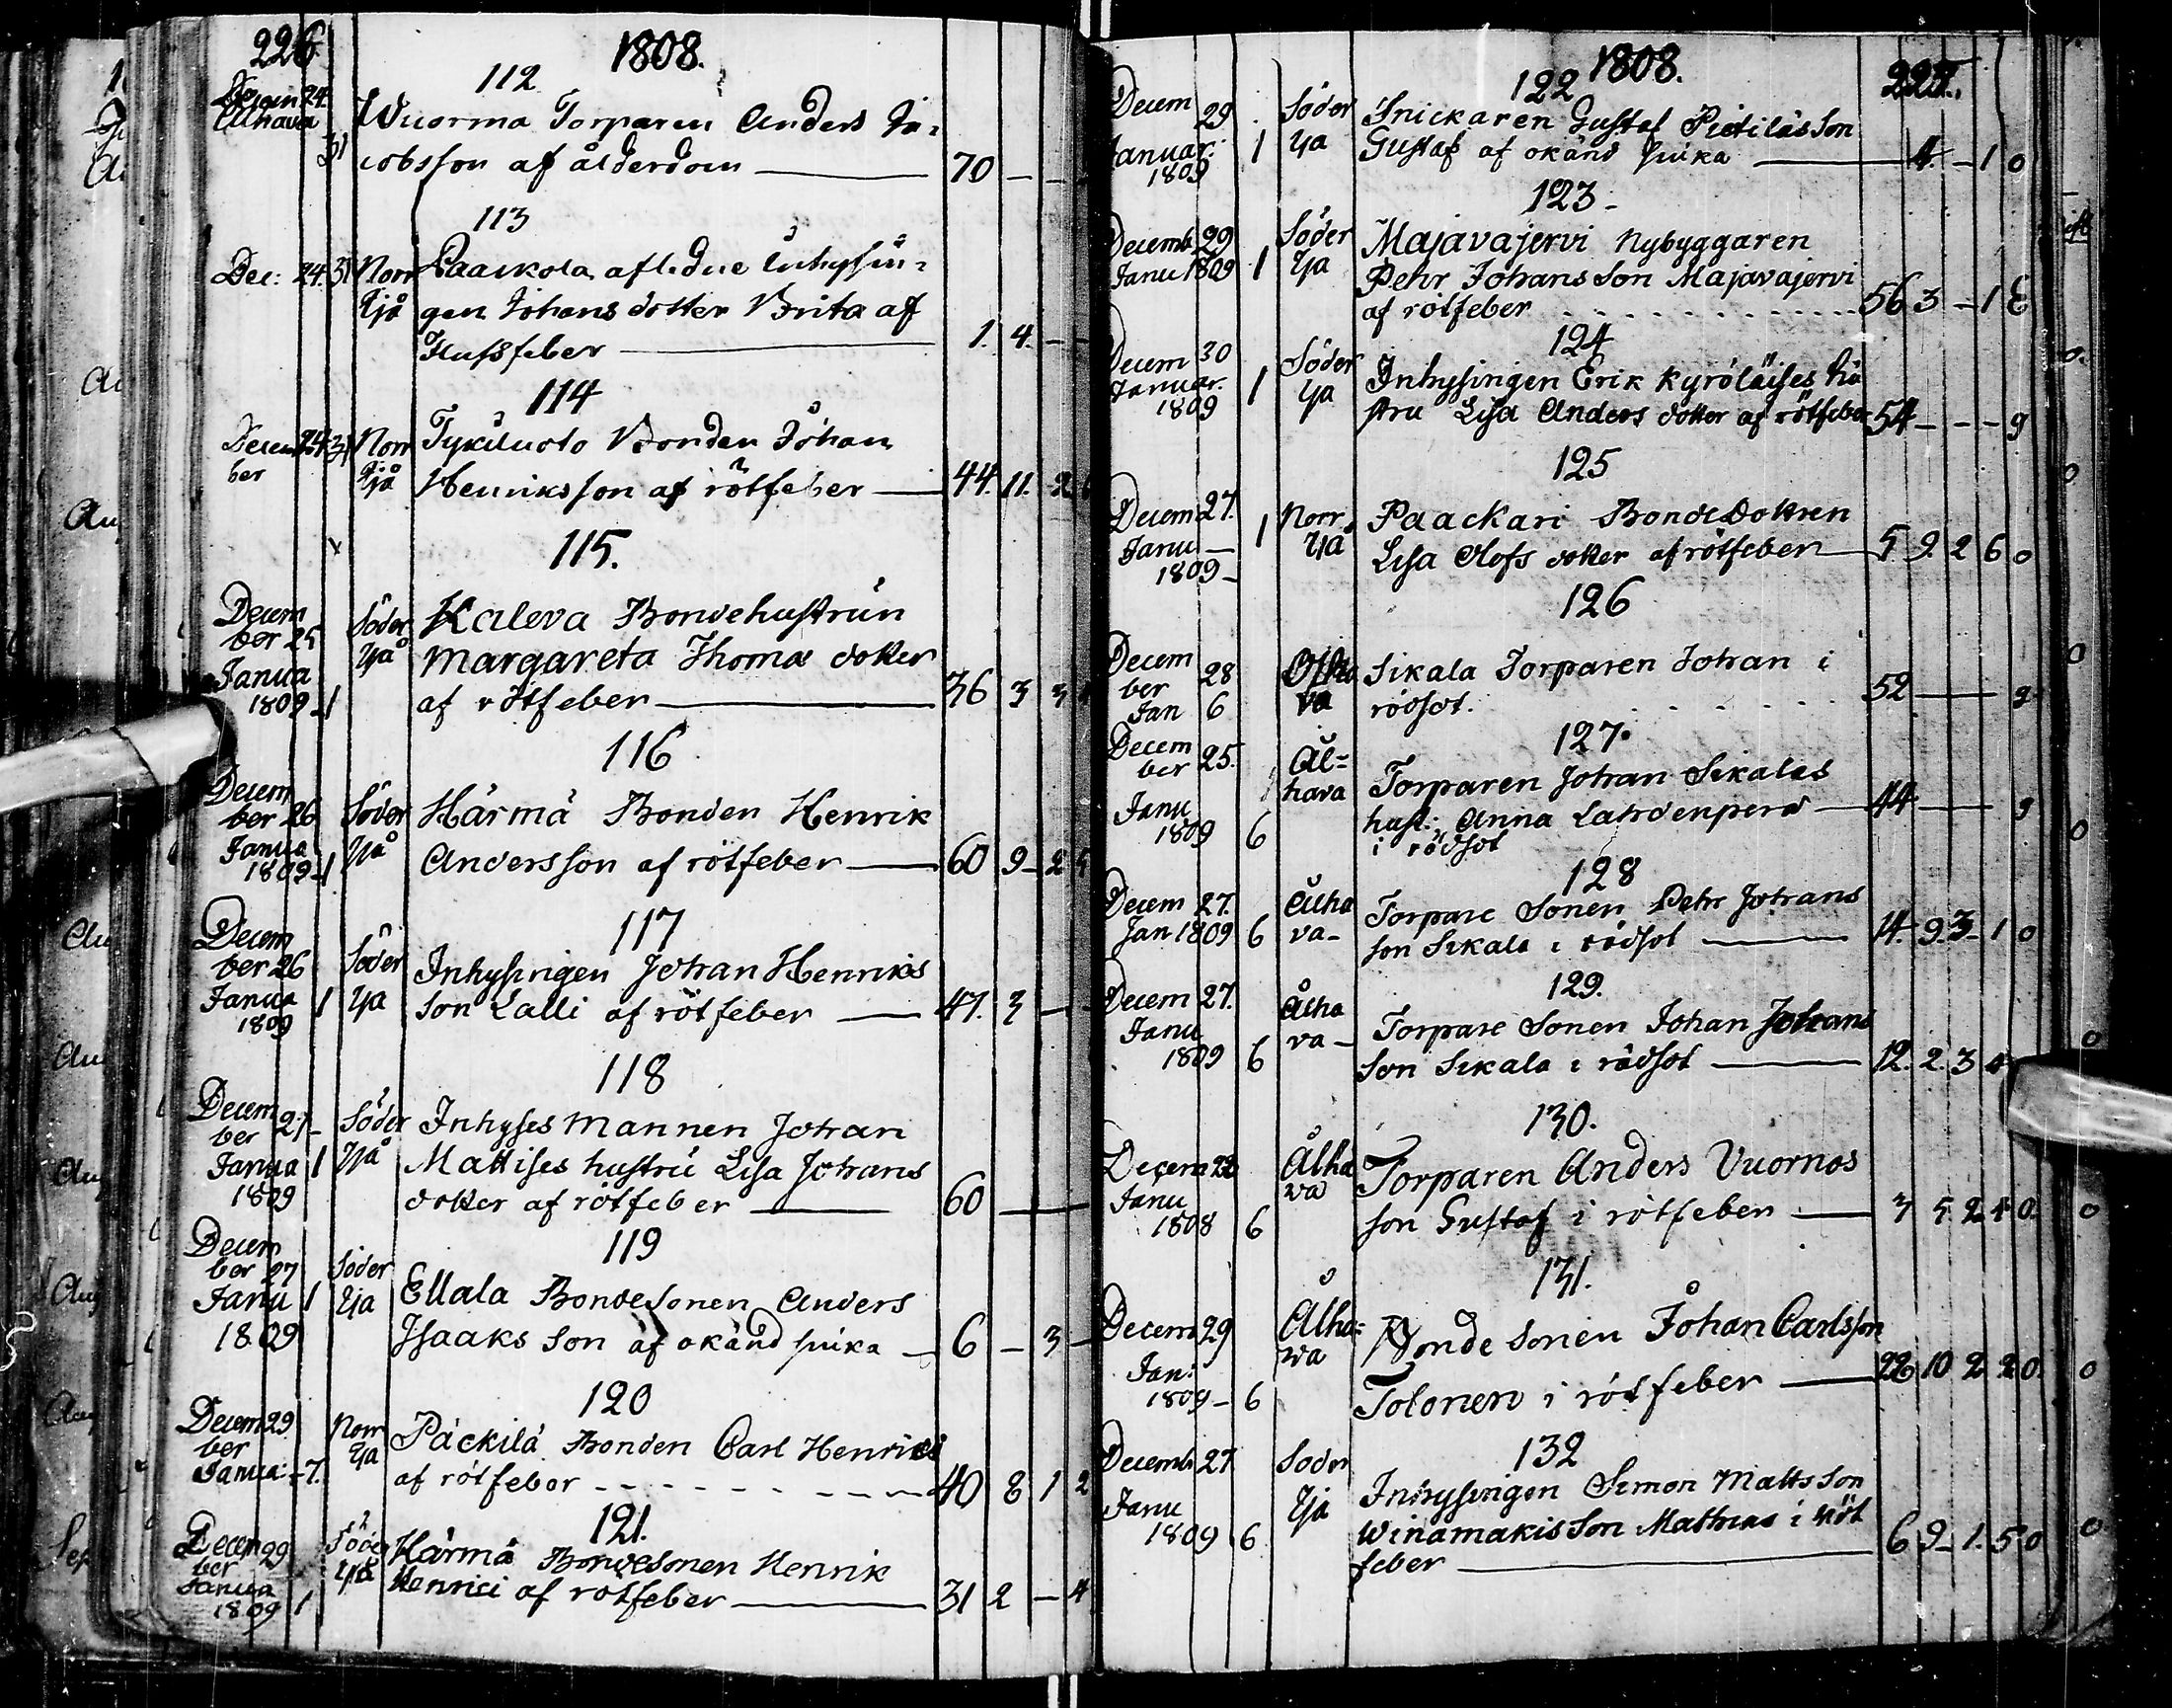 226 1808.
112
Decem 24 31 Wuorma Torparen Anders Ja=
Alhava cobsson af ålderdom 70 — —
113
Dec: 24. 31 Norr Paavola aflidne Inhysin=
Ijå gen Johans dotter Brita af
Flussfeber 1. 4. — —
114
Decem 24 31 Norr Tykiluoto Bonden Johan
ber Ijå Henriksson af rötfeber 44. 11. 2
115.
Decem Söder Kaleva Bondehustrun
ber 25 Ijå Margareta Thomæ dotter
Janua
1809 1 af rötfeber 36 3 3
116
Decem
ber 26 Söder Härmä Bonden Henrik
Janua Ijå
1809 1 Andersson af rötfeber 60 9 2
117
Decem
ber 26 Söder Inhysingen Johan Henriks
Janua 1 Ija son Lalli af rötfeber 47. 3 —
1809
118
Decem
ber 27 Söder Inhyses Mannen Johan
Janua 1 Ijå Mattises hustru Lisa Johans
1809 dotter af rötfeber 60 —
119
Decem
ber 27 Söder
Janu 1 Ija Ellala Bondesonen Anders
1809 Isaaks Son af okänd sjuka 6 — 3 —
120
Decem 29 Norr Päckilä Bonden Carl Henrici
ber Ija
Janua: 7. af rötfeber 40 8 1 2
121.
Decem 29 Söder Härmä Bondesonen Henrik
ber Ijå
Janua Henrici af rötfeber 31 2 — 4
1809 1
1808. 227.
122
Decem 29 Söder Snickaren Gustaf Pietiläs Son
Januar: 1 Ija Gustaf af okänd sjuka 4 — 1 0
1809
123
Decemb 29 Söder Majavajervi Nybyggaren
Janu 1809 1 Ija Pehr Johans Son Majavajervi
af rötfeber 56 3 — 1
124
Decem 30 Söder Inhysingen Erik Kyröläises hu
Januar. 1 Ija stru Lisa Anders dotter af rötfeber 54 — — — 9
1809
125
Decem 27. Norr Paackari Bondedottren
Janu — 1 Ijå Lisa Olofs dotter af rötfeber 5 9 2 6 0
1809
126
Decem
ber 28 Sikala Torparen Johan i
Jan 6 va rödsot. 52 — 9
127.
Decem
ber 25. Al= Torparen Johan Sikalas
hava
Janu hust: Anna Lahdenperä 44 — 9
1809 6 i rödsot
128
Decem 27. Alha Torpare Sonen Pehr Johans
Jan 1809 6 va son Sikala i rödsot 14. 9 3 1 0
129.
Decem 27. Alha
Janu va Torpare Sonen Johan Johans
1809 6 son Sikala i rödsot 12. 2. 3
130.
Decem Alha Torparen Anders Vuornos
Janu va
1808 6 son Gustaf i rötfeber 3 5 2 1 0
131.
Decem 29 Alha= Bonde Sonen Johan Carlsson
Jan: va
1809 6 Tolonen i rötfeber 22 10 2 2 0
132
Decemb 27 Söder Inhysingen Simon Matts Son
Janu Ija
1809 6 Winamakis Son Mathias i röt
feber 6 9 1. 5 0